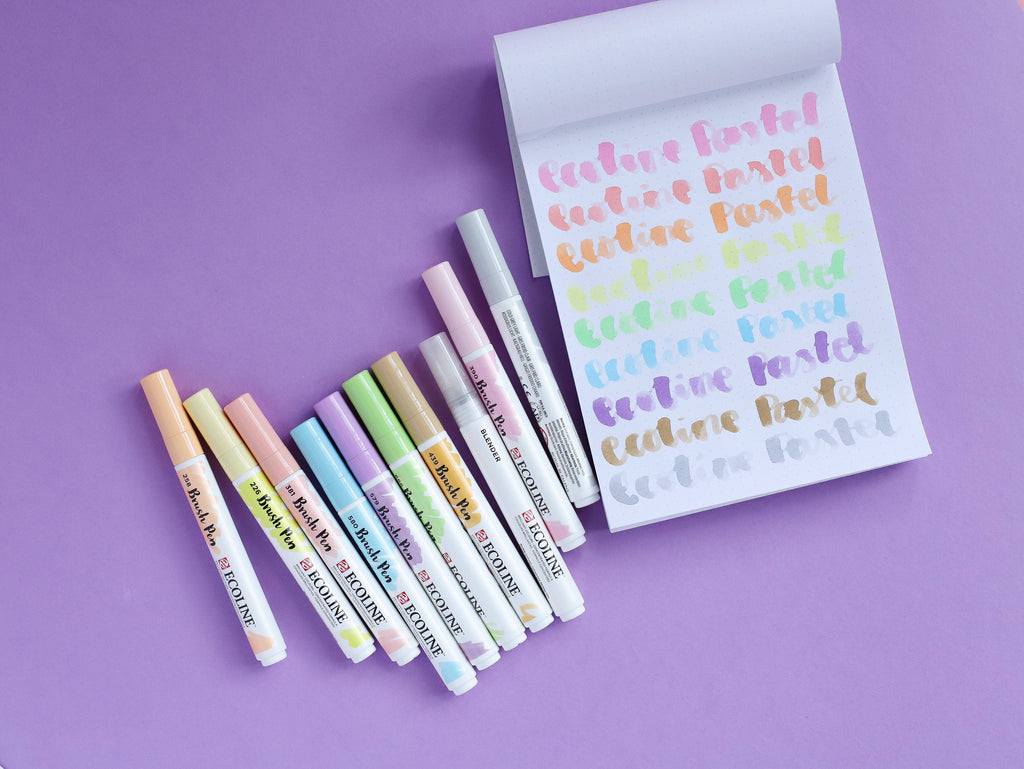 ecoline Pastel
ecoline Pastel
ecoline Pastel
ecoline Pastel
ecoline Pastel
ecoline Pastel
ecoline Pastel
ecoline Pastel
ecoline Pastel
258 Brush Pen
ECOLINE
226 Brush Pen
ECOLINE
381 Brush Pen
ECOLINE
580 Brush Pen
ECOLINE
579 Brush Pen
ECOLINE
Brush Pen
ECOLINE
439 Brush Pen
ECOLINE
BLENDER
ECOLINE
390 Brush Pen
ECOLINE